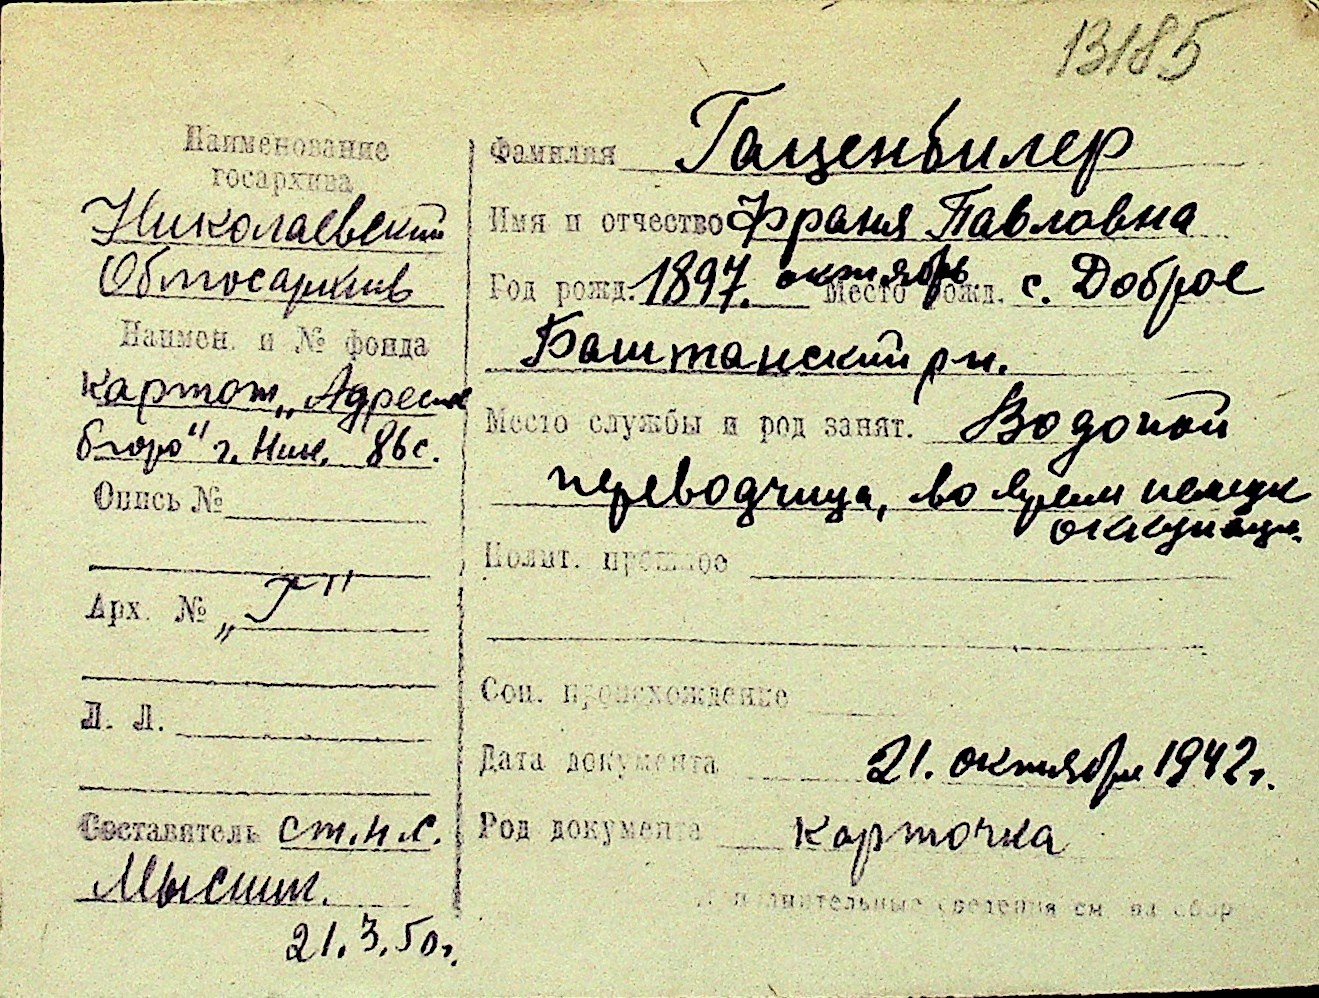 13185
Наименование
госархива
Николаевский
Облгосархив
Наимен. и № фонда
картот. „Адресное
бюро" г. Ник. 86с.
Опись №
Арх. № „Г"
Л. Л.
Составитель ст.н.с.
21.3.50г.
Фамилия Гаценбилер
Имя и отчество Франя Павловна
Год рожд. 1897. октябрь Место рожд. с. Доброе
Баштанский р-н.
Место службы и род занят. Водопой
переводчица, во время немецк
оккупации.
Полит. прошлое
Соц. происхождение
Дата документа 21. октября 1942г.
Род документа карточка
Дополнительные сведения см. на обор